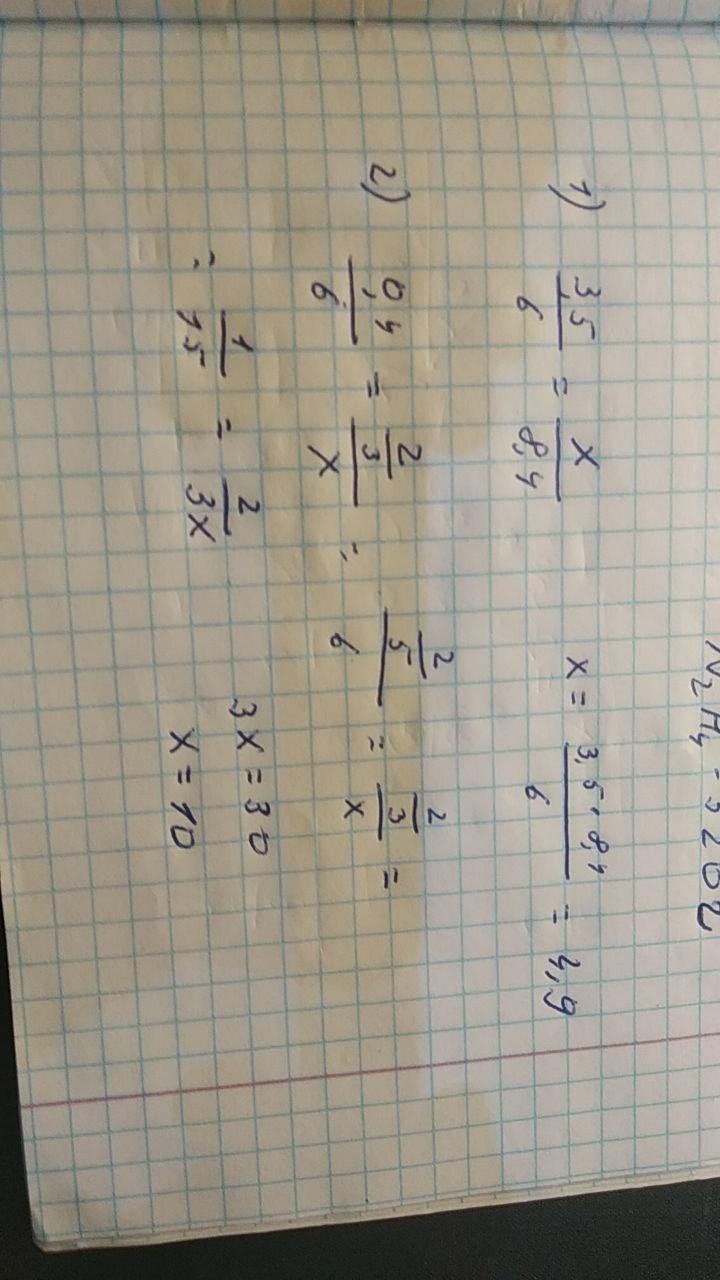 N₂H₄ -
1) 3,5/6 = x/8,4    x = 3,5·8,4/6 = 4,9
2) 0,4/6 = (2/3)/x = (2/5)/6 = (2/3)/x =
= 1/15 = 2/3x    3x = 30
x = 10